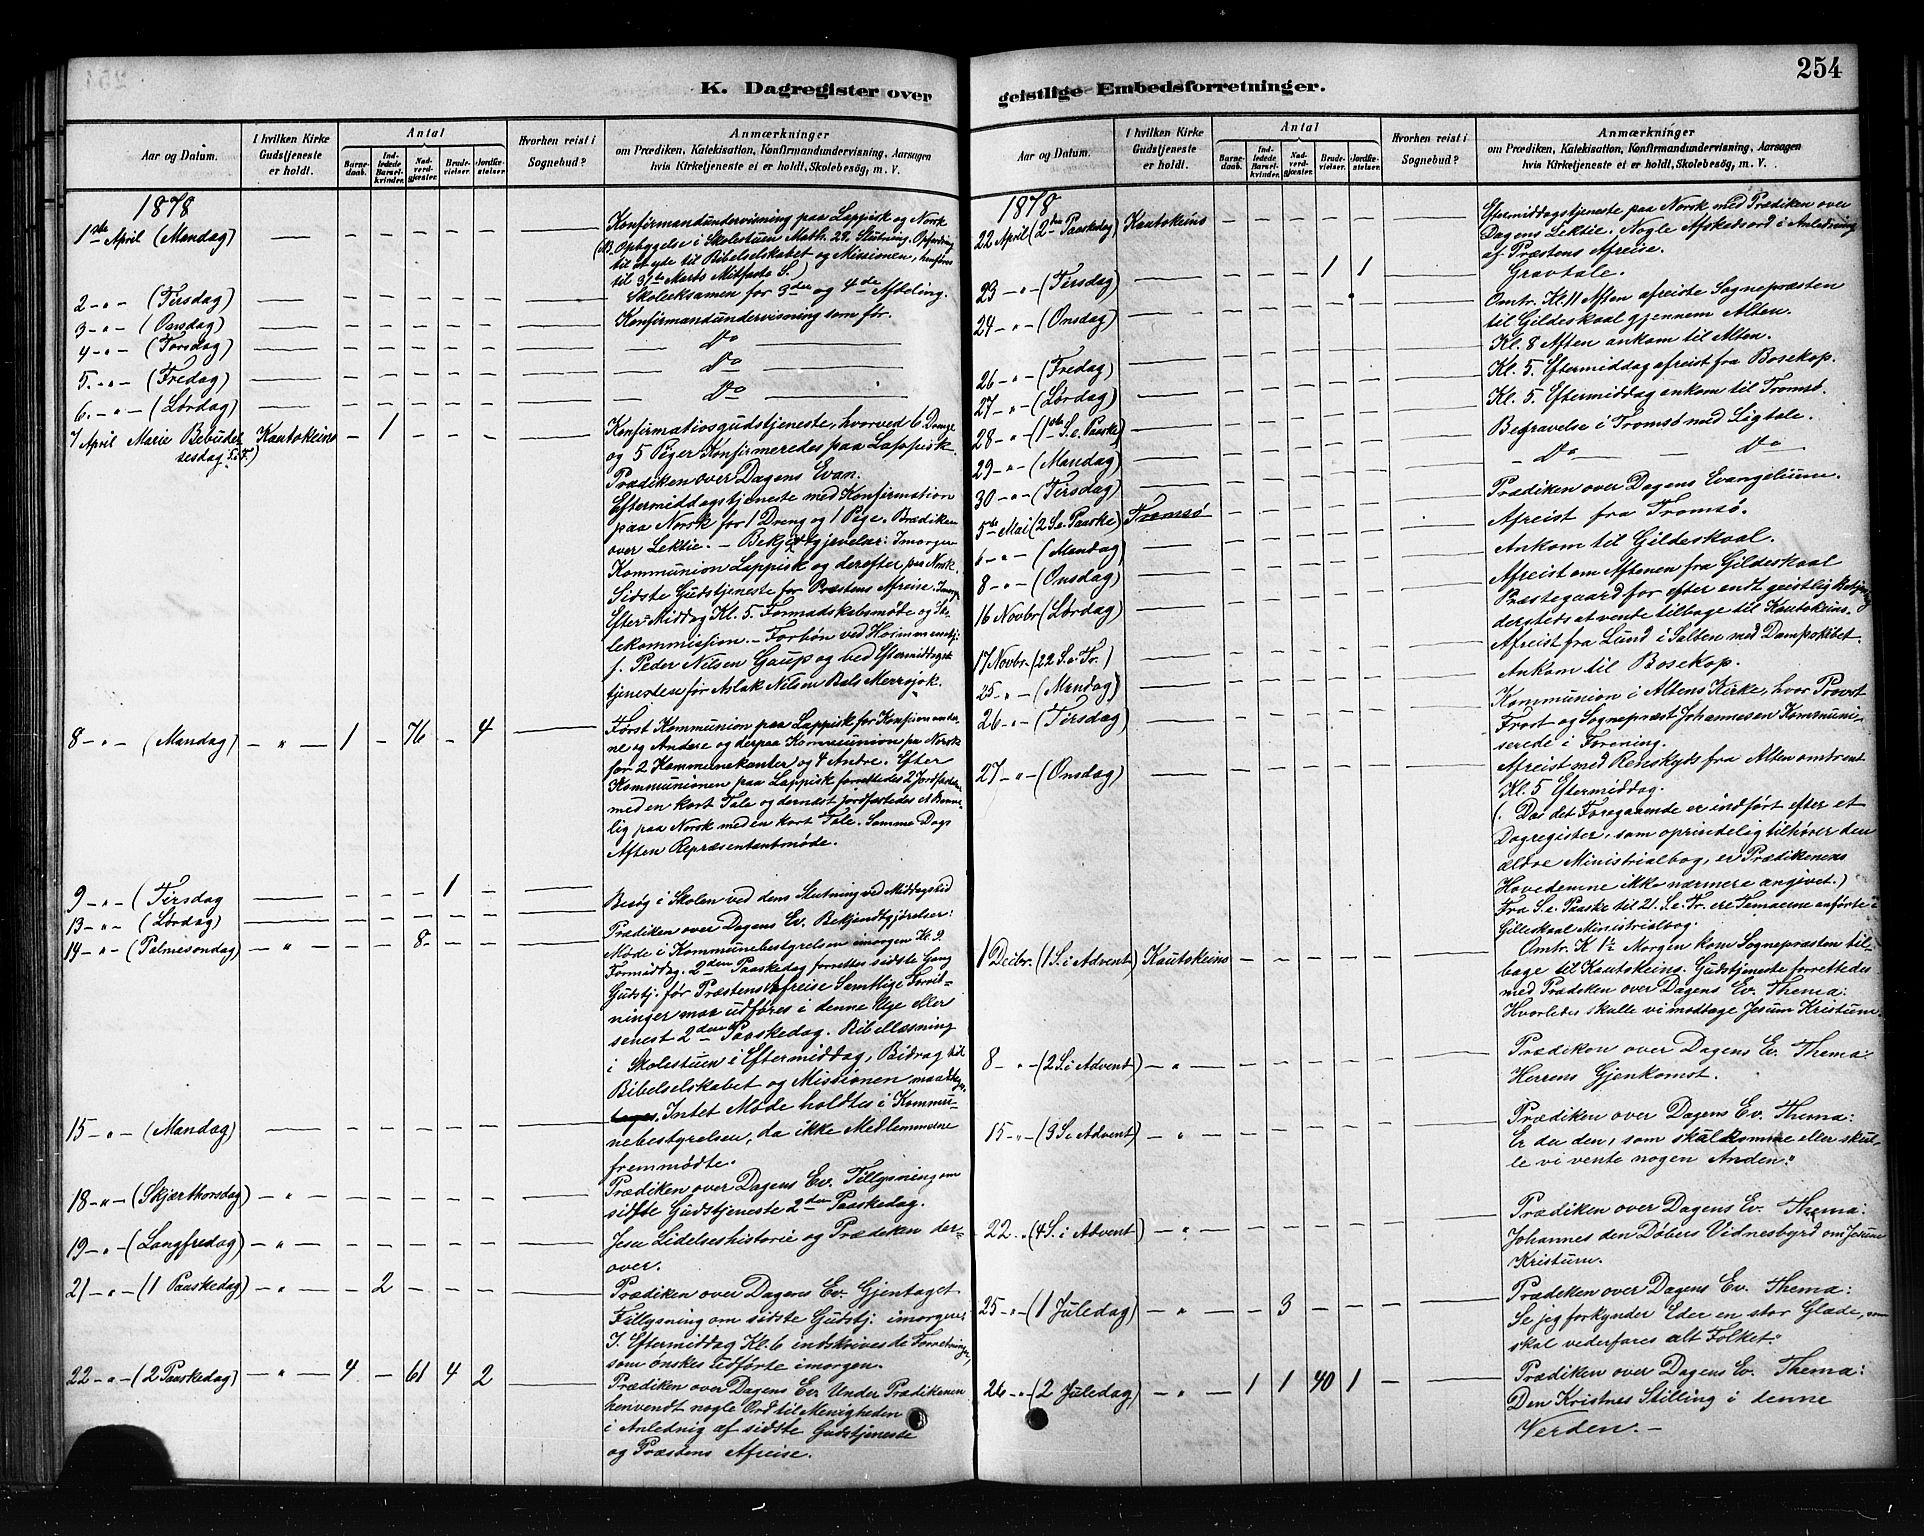 254
K. Dagregister over
geistlige Embedsforretninger.
Aar og Datum.
I hvilken Kirke Gudstjeneste er holdt.
Antal
Barnedaab.
Indledede Barselkvinder.
Nadverdgjæster.
Brudevielser.
Jordfæstelser.
Hvorhen reist i Sognebud?
Anmærkninger
om Prædiken, Katekisation, Konfirmandundervisning, Aarsagen
hvis Kirketjeneste ei er holdt, Skolebesög, m. V.
1878
1ste April (Mandag) — — — — — — — Konfirmandundervisning paa Lappisk og Norsk
(B. Opbyggelse i Skolestuen Math. 28. Slutning. Opfordring
til at yde til Bibelselskabet og Missionen, henføres
til 31te Marts Mitfaste S.)
2 - " - (Tirsdag) — — — — — — — Skoleeksamen for 3die og 4de Afdeling.
3 - " - (Onsdag) — — — — — — — Konfirmandundervisning som før.
4 - " - (Torsdag) — — — — — — — Do
5. - " - (Fredag) — — — — — — — Do
6. - " - (Lørdag) — — — — — — — Do
7 April Marie Bebudel- Kautokeino — 1 — — — — Konfirmationsgudstjeneste, hvorved 6 Drenge
sesdag 5. i F.) og 5 Piger Konfirmeredes paa Lappisk.
Prædiken over Dagens Evan.
Eftermiddagstjeneste med Konfirmation
paa Norsk for 1 Dreng og 1 Pige. Prædiken
over Lektie. — Bekjendtgjørelser: Imorgen
Kommunion Lappisk og derefter paa Norsk.
Sidste Gudstjeneste før Præstens Afreise. Imorgen
Efter-Middag Kl. 5. Formandskabsmøde og Sko-
lekommission. — Forbøn ved Høimessetj.
f. Peder Nilsen Gaup og ved Eftermiddags-
tjenesten før Aslak Nilsen Bals Merrajok.
8 - " - (Mandag) — " — 1 — 76 — 4 — Først Kommunion paa Lappisk for Konfirmander-
ne og Andre og derpaa Kommunion paa Norsk
for 2 Kommunikanter og 4 Andre. Efter
Kommunionen paa Lappisk forrettedes 2 Jordfæstelser
med en kort Tale og dernæst jordfæstedes et Barne-
lig paa Norsk med en kort Tale. Samme Dags
Aften Repræsentantmøde.
9 - " - (Tirsdag — — — — 1 — — Besøg i Skolen ved dens Slutning ved Middagstid
13 - " - (Lørdag) — — — — — —
14 - " - (Palmesøndag) — " — — — 8 - — — — Prædiken over Dagens Ev. Bekjendtgjørelser:
Møde i Kommunebestyrelsen imorgen Kl. 9.
Formiddag. 2den Paaskedag forrettes sidste Gang
Gudstj. før Præstens Afreise Samtlige Forret-
ninger maa udføres i denne Uge eller
senest 2den Paaskedag. Bibellæsning
i Skolestuen i Eftermiddag, Bidrag til
Bibelselskabet og Missionen
15 - " - (Mandag) — — — — — — — Intet Møde holdtes i Kommu-
nebestyrelsen, da ikke Medlemmerne
fremmødte.
18 - " - (Skjærthorsdag) — " — — — — — — — Prædiken over Dagens Ev. Tillysning om
sidste Gudstjeneste 2den Paaskedag.
19 - " - (Langfredag) — " — — — — — — — Jesu Lidelseshistorie og Prædiken der-
over.
21 - " - (1 Paaskedag) — " — — 2 — — — — Prædiken over Dagens Ev. Gjentaget
Tillysning om sidste Gudstj: imorgen.
I Eftermiddag Kl. 6 indskrives de Forretninger,
som ønskes udførte imorgen.
22 - " - (2 Paaskedag) — " — 4 — 61 4 2 — Prædiken over Dagens Ev. Under Prædikenen
henvendt nogle Ord til Menigheden
i Anledning af sidste Gudstjeneste
og Præstens Afreise.
Aar og Datum.
I hvilken Kirke Gudstjeneste er holdt.
Antal
Barnedaab.
Indledede Barselkvinder.
Nadverdgjæster.
Brudevielser.
Jordfæstelser.
Hvorhen reist i Sognebud?
Anmærkninger
om Prædiken, Katekisation, Konfirmandundervisning, Aarsagen
hvis Kirketjeneste ei er holdt, Skolebesög, m. V.
1878
22 April (2den Paaskedag) Kautokeino — — — — — — Eftermiddagstjeneste paa Norsk med Prædiken over
Dagens Lektie. Nogle Afskedsord i Anledning
af Præstens Afreise.
23 - " - (Tirsdag) — — — — 1 1 — Gravtale.
24 - " - (Onsdag) — — — — — — — Omtr. Kl. 11 Aften afreiste Sognepræsten
til Gildeskaal gjennem Alten.
26 - " - (Fredag) — — — — — — — Kl. 8 Aften ankom til Alten.
27 - " - (Lørdag) — — — — — — — Kl. 5. Eftermiddag afreist fra Bosekop.
28 - " - (1ste S. e. Paaske) — — — — — — — Kl. 5. Eftermiddag ankom til Tromsö.
29 - " - (Mandag) — — — — — — — Begravelse i Tromsö med Ligtale.
30 - " - (Tirsdag) — — — — — — — Do — Do
5te Mai (2 S. e. Paaske) Tromsö — — — — — — Prædiken over Dagens Evangelium.
6 - " - (Mandag) — — — — — — — Afreist fra Tromsö.
8 - " - (Onsdag) — — — — — — — Ankom til Gildeskaal.
16 Novbr (Lørdag) — — — — — — — Afreist om Aftenen fra Gildeskaal
Præstegaard for efter endt geistlig Betjening
dersteds at vende tilbage til Kautokeino.
17 Novbr. (22 S. e. Tr.) — — — — — — — Afreist fra Lund i Salten med Dampskibet.
25 - " - (Mandag) — — — — — — — Ankom til Bosekop.
26 - " - (Tirsdag) — — — — — — — Kommunion i Altens Kirke, hvor Provst
Frost og Sognepræst Johannesen Kommuni-
serede i Forening.
27 - " - (Onsdag) — — — — — — — Afreist med Renskyds fra Alten omtrent
Kl. 5 Eftermiddag.
(. Da det Foregaaende er indført efter et
Dagregister, som oprindelig tilhører den
ældre Ministrialbog, er Prædikenens
Hovedemne ikke nærmere angivet.)
Fra S. e. Paaske til 21. S. e. Tr. ere Temaerne anførte i
Gilleskaal Ministrialbog.
1 Decbr. (1 S. i Advent) Kautokeino — — — — — — Omtr. K 1½ Morgen kom Sognepræsten til-
bage til Kautokeino. Gudstjeneste forrettedes
med Prædiken over Dagens Ev. Thema:
Hvorledes skulle vi modtage Jesum Kristum.
8 - " - (2 S. i Advent) — " — — — — — — — Prædiken over Dagens Ev. Thema:
Herrens Gjenkomst.
15 - " - (3 S. i Advent) — " — — — — — — — Prædiken over Dagens Ev. Thema:
Er du den, som skal komme eller skul-
le vi vente nogen Anden."
22. " (4 S. i Advent) — " — — — — — — — Prædiken over Dagens Ev. Thema:
Johannes den Døbers Vidnesbyrd om Jesum
Kristum.
25 - " - (1 Juledag) — " — — — 3 — — — Prædiken over Dagens Ev. Thema:
Se jeg forkynder Eder en stor Glæde, som
skal vederfares alt Folket."
26 - " - (2 Juledag) — " — 1 1 40 1 — — Prædiken over Dagens Ev. Thema:
Den Kristnes Stilling i denne
Verden. —